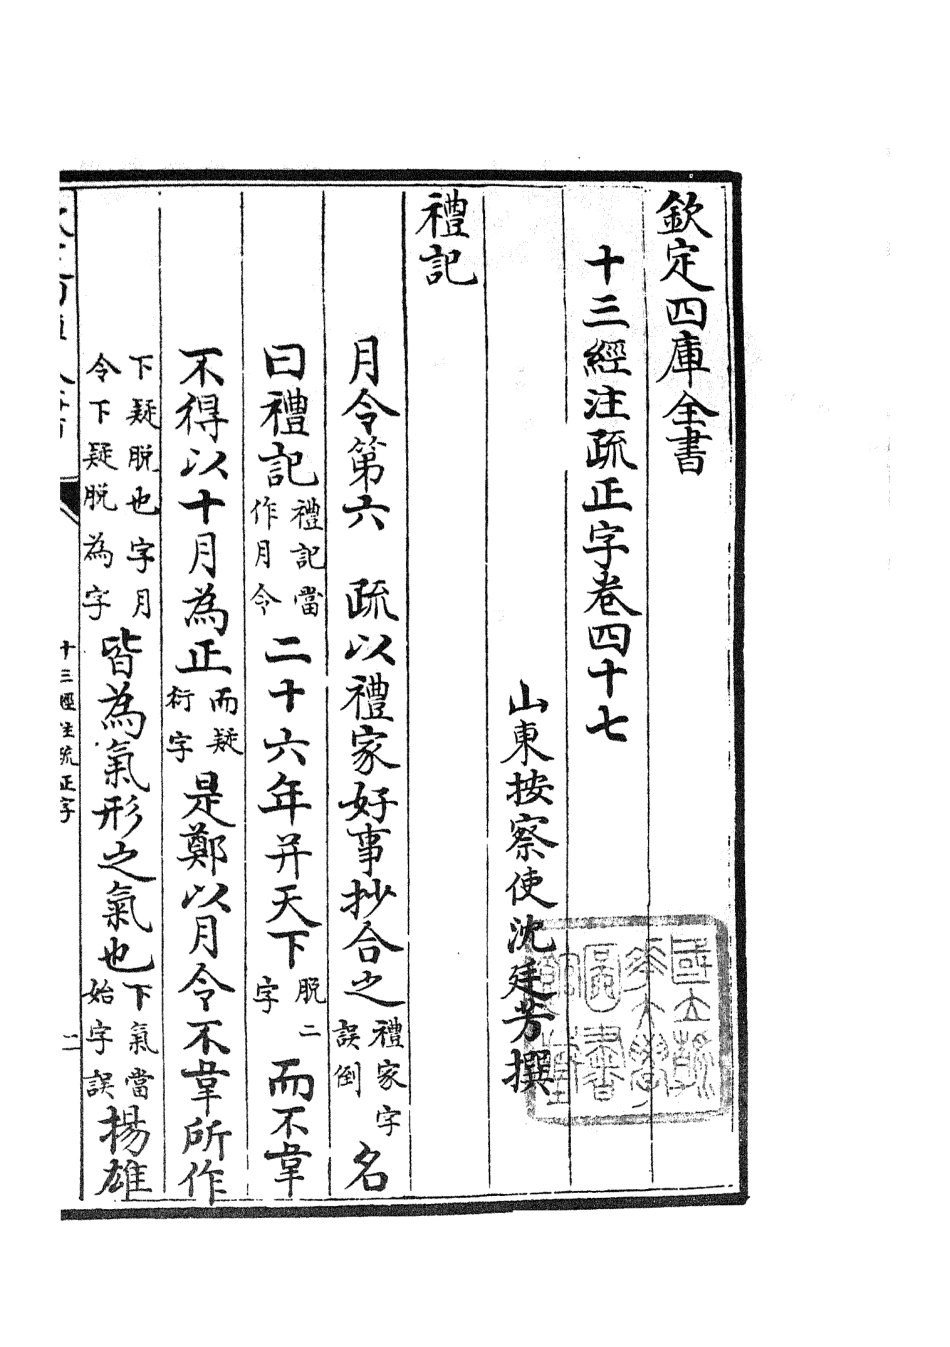 欽定四庫全書
十三經注疏正字卷四十七
山東按察使沈廷芳撰
禮記
月令第六　疏以禮家好事抄合之禮家字誤倒名
曰禮記禮記當作月令二十六年并天下脱二字而不韋
不得以十月為正而疑衍字是鄭以月令不韋所作
下疑脱也字月令下疑脱為字皆為氣形之氣也下氣當始字誤揚雄
十三經注疏正字
二